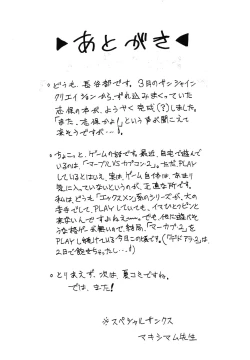 ▶あとがき◀
。どうも、長谷部です。3月のサンシャイン
クリエイションから、ずれ込みまくっていた
志保の本が、ようやく完成(?)しました。
「また、志保かよ!」という声が聞こえて
来そうですが…。
。ちょこっと、ゲームの対です。最近、自宅で遊んで
いるのは、「マーブルVSカプコン2」。ただ、PLAY
しているとはいえ、実は、ゲーム自体は、あまり
気に入っていないというのが、正直な所です。
私は、どうも「エックスメン」系のシリーズが、大の
苦手でして、PLAYしていても、イマひとつピンと
来ないんですよねえ〜。でも、他に遊べそ
うな格ゲーが無いので、結局、「マーカプ2」を
PLAYし続けている今日この頃です。(「デドアラ2」は、
2日で飽きちゃったし…!)
。とりまえず、次は、夏コミですね。
では、また!
※スペシャルサンクス
マキシマム先生